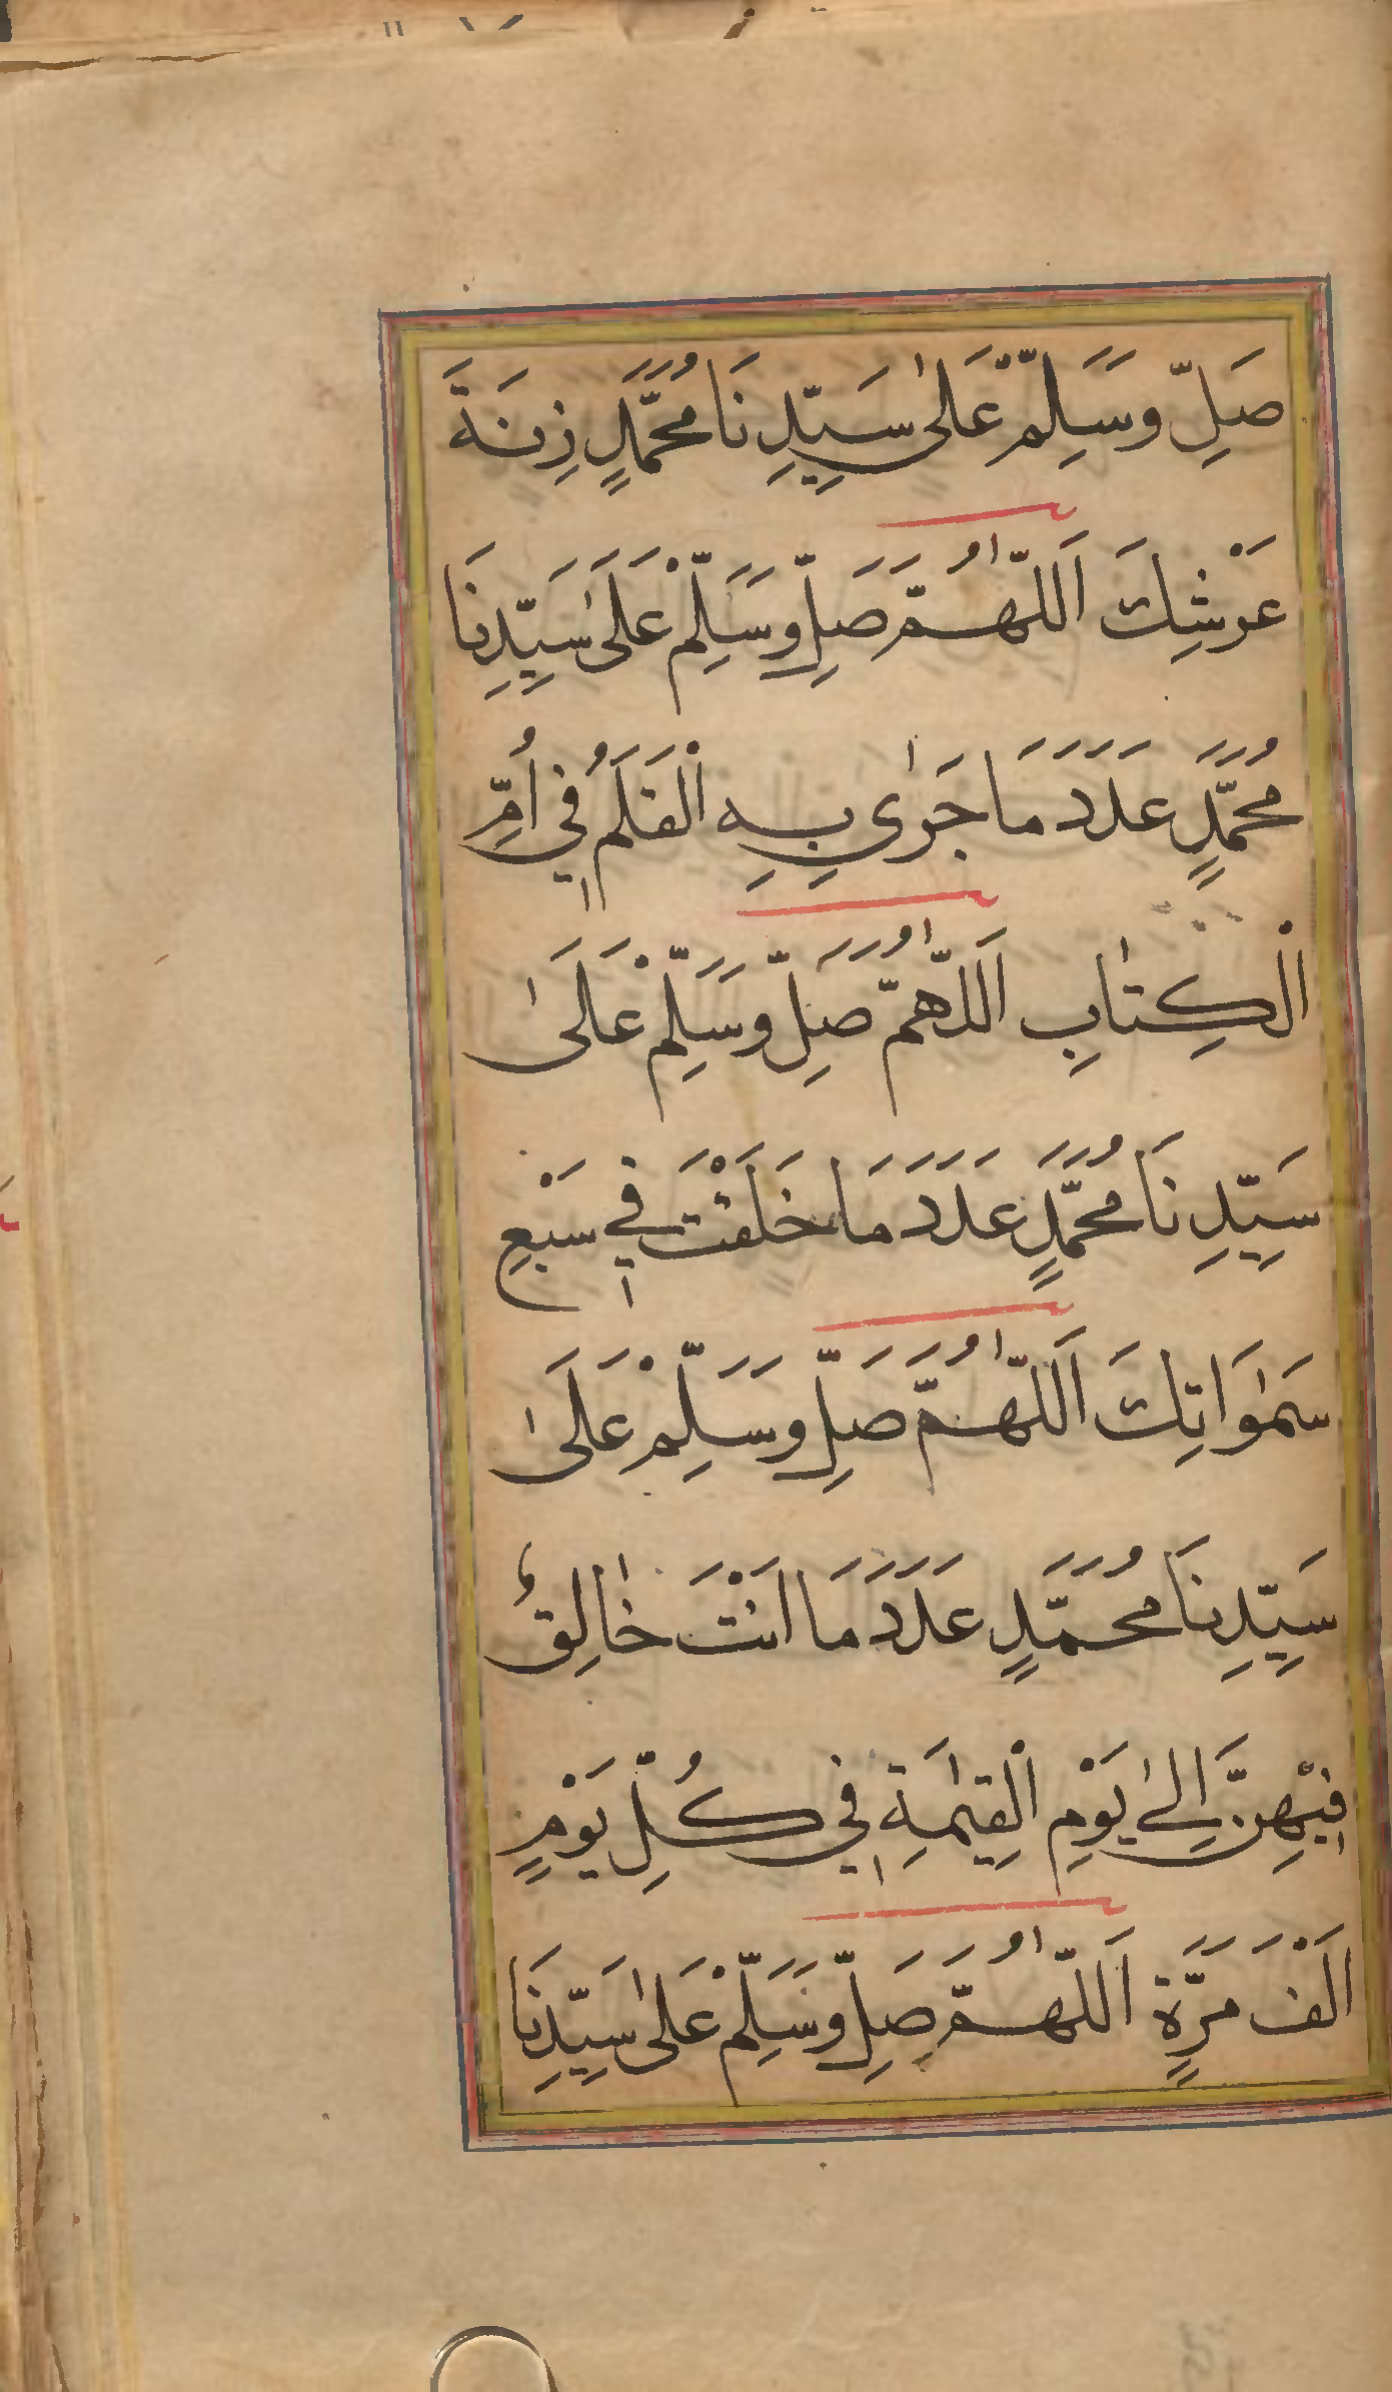 صَلِّ وَسَلِّمْ عَلٰى سَيِّدِنَا مُحَمَّدٍ زِنَةَ
عَرْشِكَ اَللّٰهُمَّ صَلِّ وَسَلِّمْ عَلَىٰ سَيِّدِنَا
مُحَمَّدٍ عَدَدَ مَا جَرٰى بِهِ الْقَلَمُ فِي أُمِّ
الْكِتٰابِ اَللّٰهُمَّ صَلِّ وَسَلِّمْ عَلَىٰ
سَيِّدِنَا مُحَمَّدٍ عَدَدَ مَا خَلَقْتَ فِي سَبْعِ
سَمٰوَاتِكَ اَللّٰهُمَّ صَلِّ وَسَلِّمْ عَلَىٰ
سَيِّدِنَا مُحَمَّدٍ عَدَدَ مَا اَنْتَ خٰالِقٌ
فِيْهِنَّ اِلٰى يَوْمِ الْقِيٰمَةِ فِي كُلِّ يَوْمٍ
اَلْفَ مَرَّةٍ اَللّٰهُمَّ صَلِّ وَسَلِّمْ عَلٰى سَيِّدِنَا